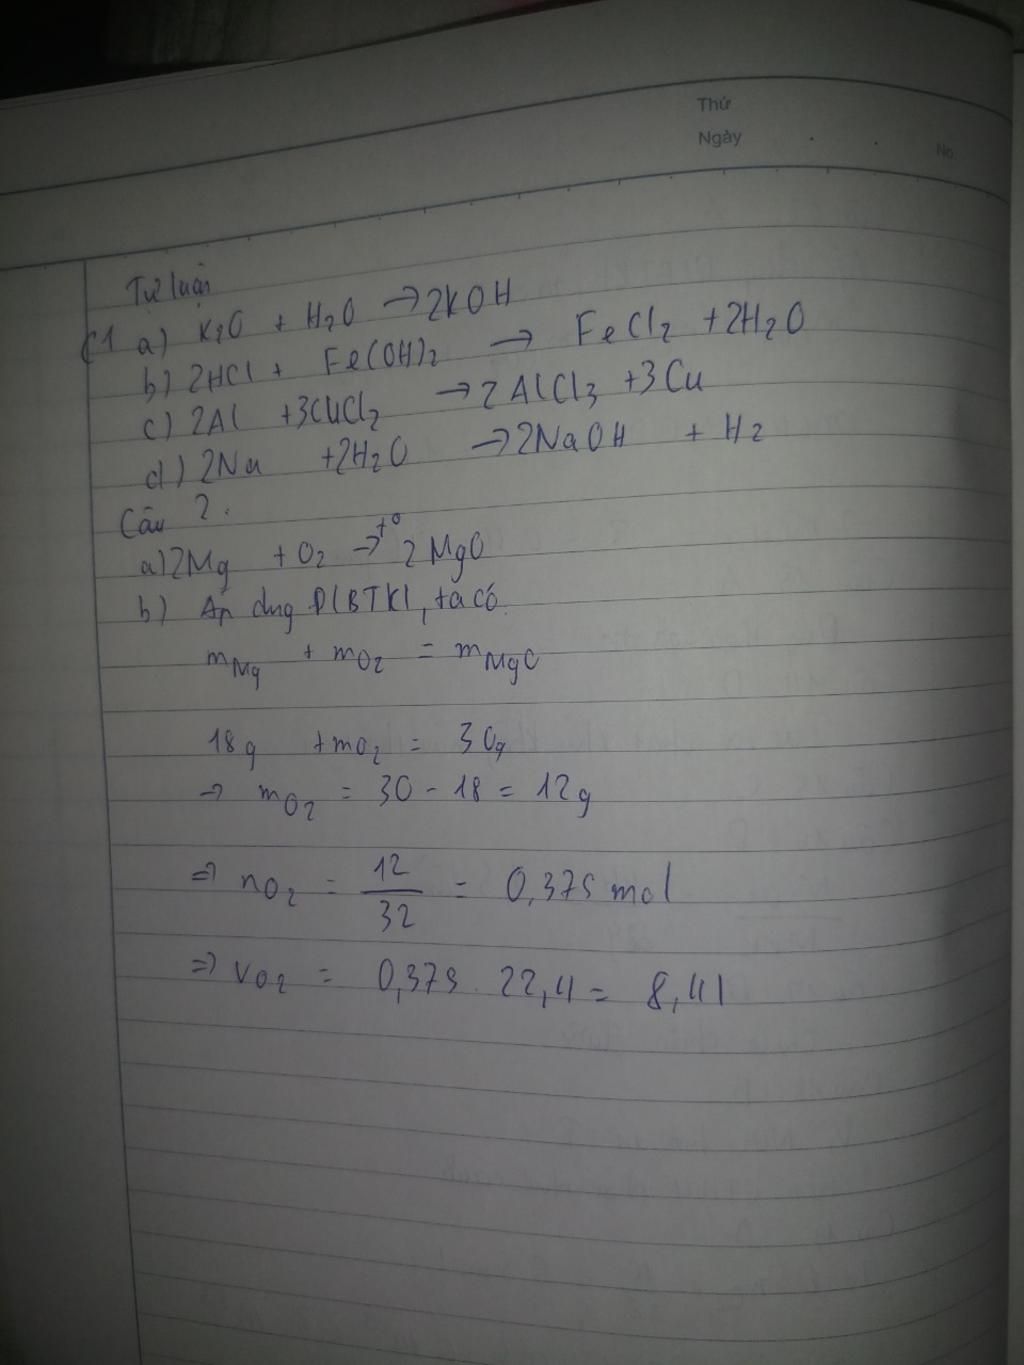 Thứ
Ngày
No
Tự luận
C1 a) K2O + H2O → 2KOH
b) 2HCl + Fe(OH)2 → FeCl2 + 2H2O
c) 2Al + 3CuCl2 → 2AlCl3 + 3Cu
d) 2Na + 2H2O → 2NaOH + H2
Câu 2.
a) 2Mg + O2 →t° 2MgO
b) Áp dụng ĐLBTKL, ta có
mMg + mO2 = mMgO
18g + mO2 = 30g
→ mO2 = 30 - 18 = 12g
⇒ nO2 = 12/32 = 0,375 mol
⇒ VO2 = 0,375 . 22,4 = 8,4l